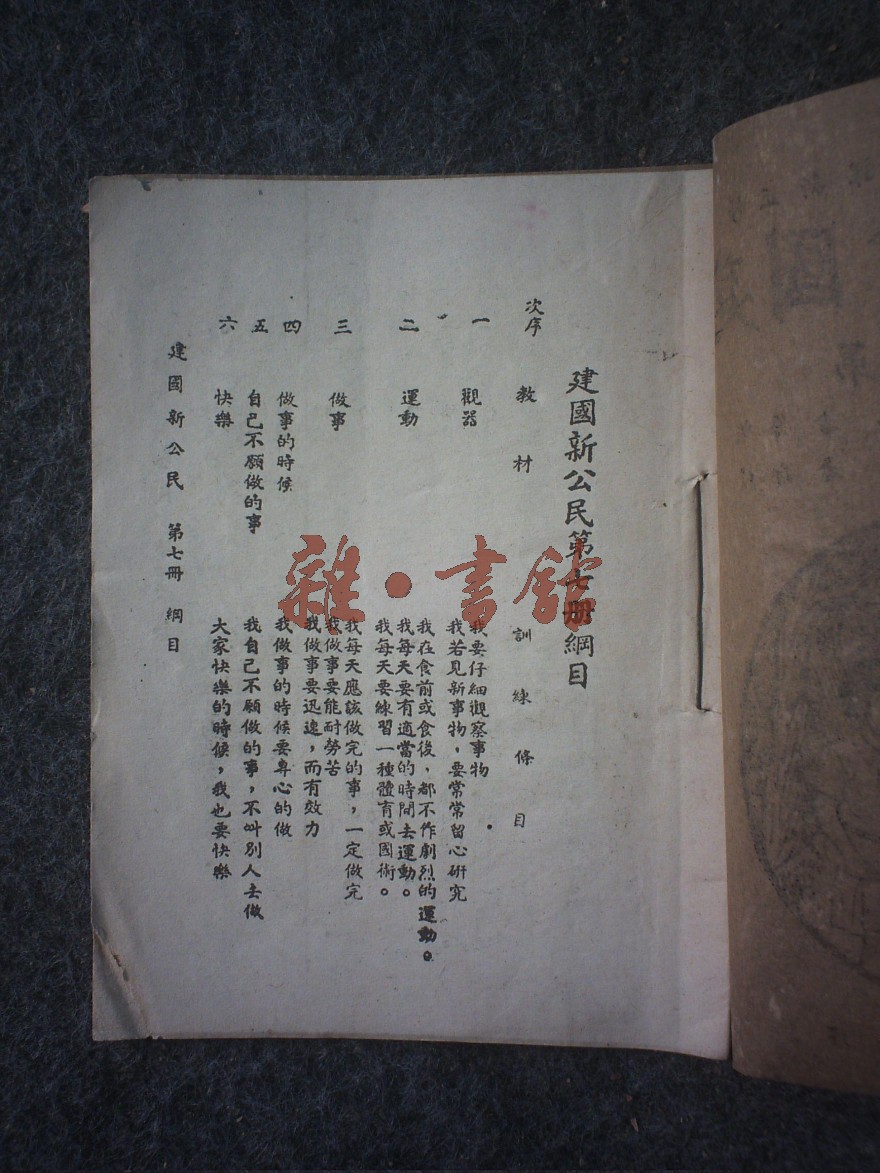 建國新公民第七冊綱目
次序 教材 訓練條目
一 觀器 我要仔細觀察事物
我若見新事物，要常常留心研究
二 運動 我在食前或食後，都不作劇烈的運動。
我每天要有適當的時間去運動。
我每天要練習一種體育或國術。
三 做事 我每天應該做完的事，一定做完
我做事要能耐勞苦
我做事要迅速，而有效力
四 做事的時候 我做事的時候要專心的做
五 自己不願做的事 我自己不願做的事，不叫別人去做
六 快樂 大家快樂的時候，我也要快樂
建國新公民 第七冊 綱目
雜·書館
國
第